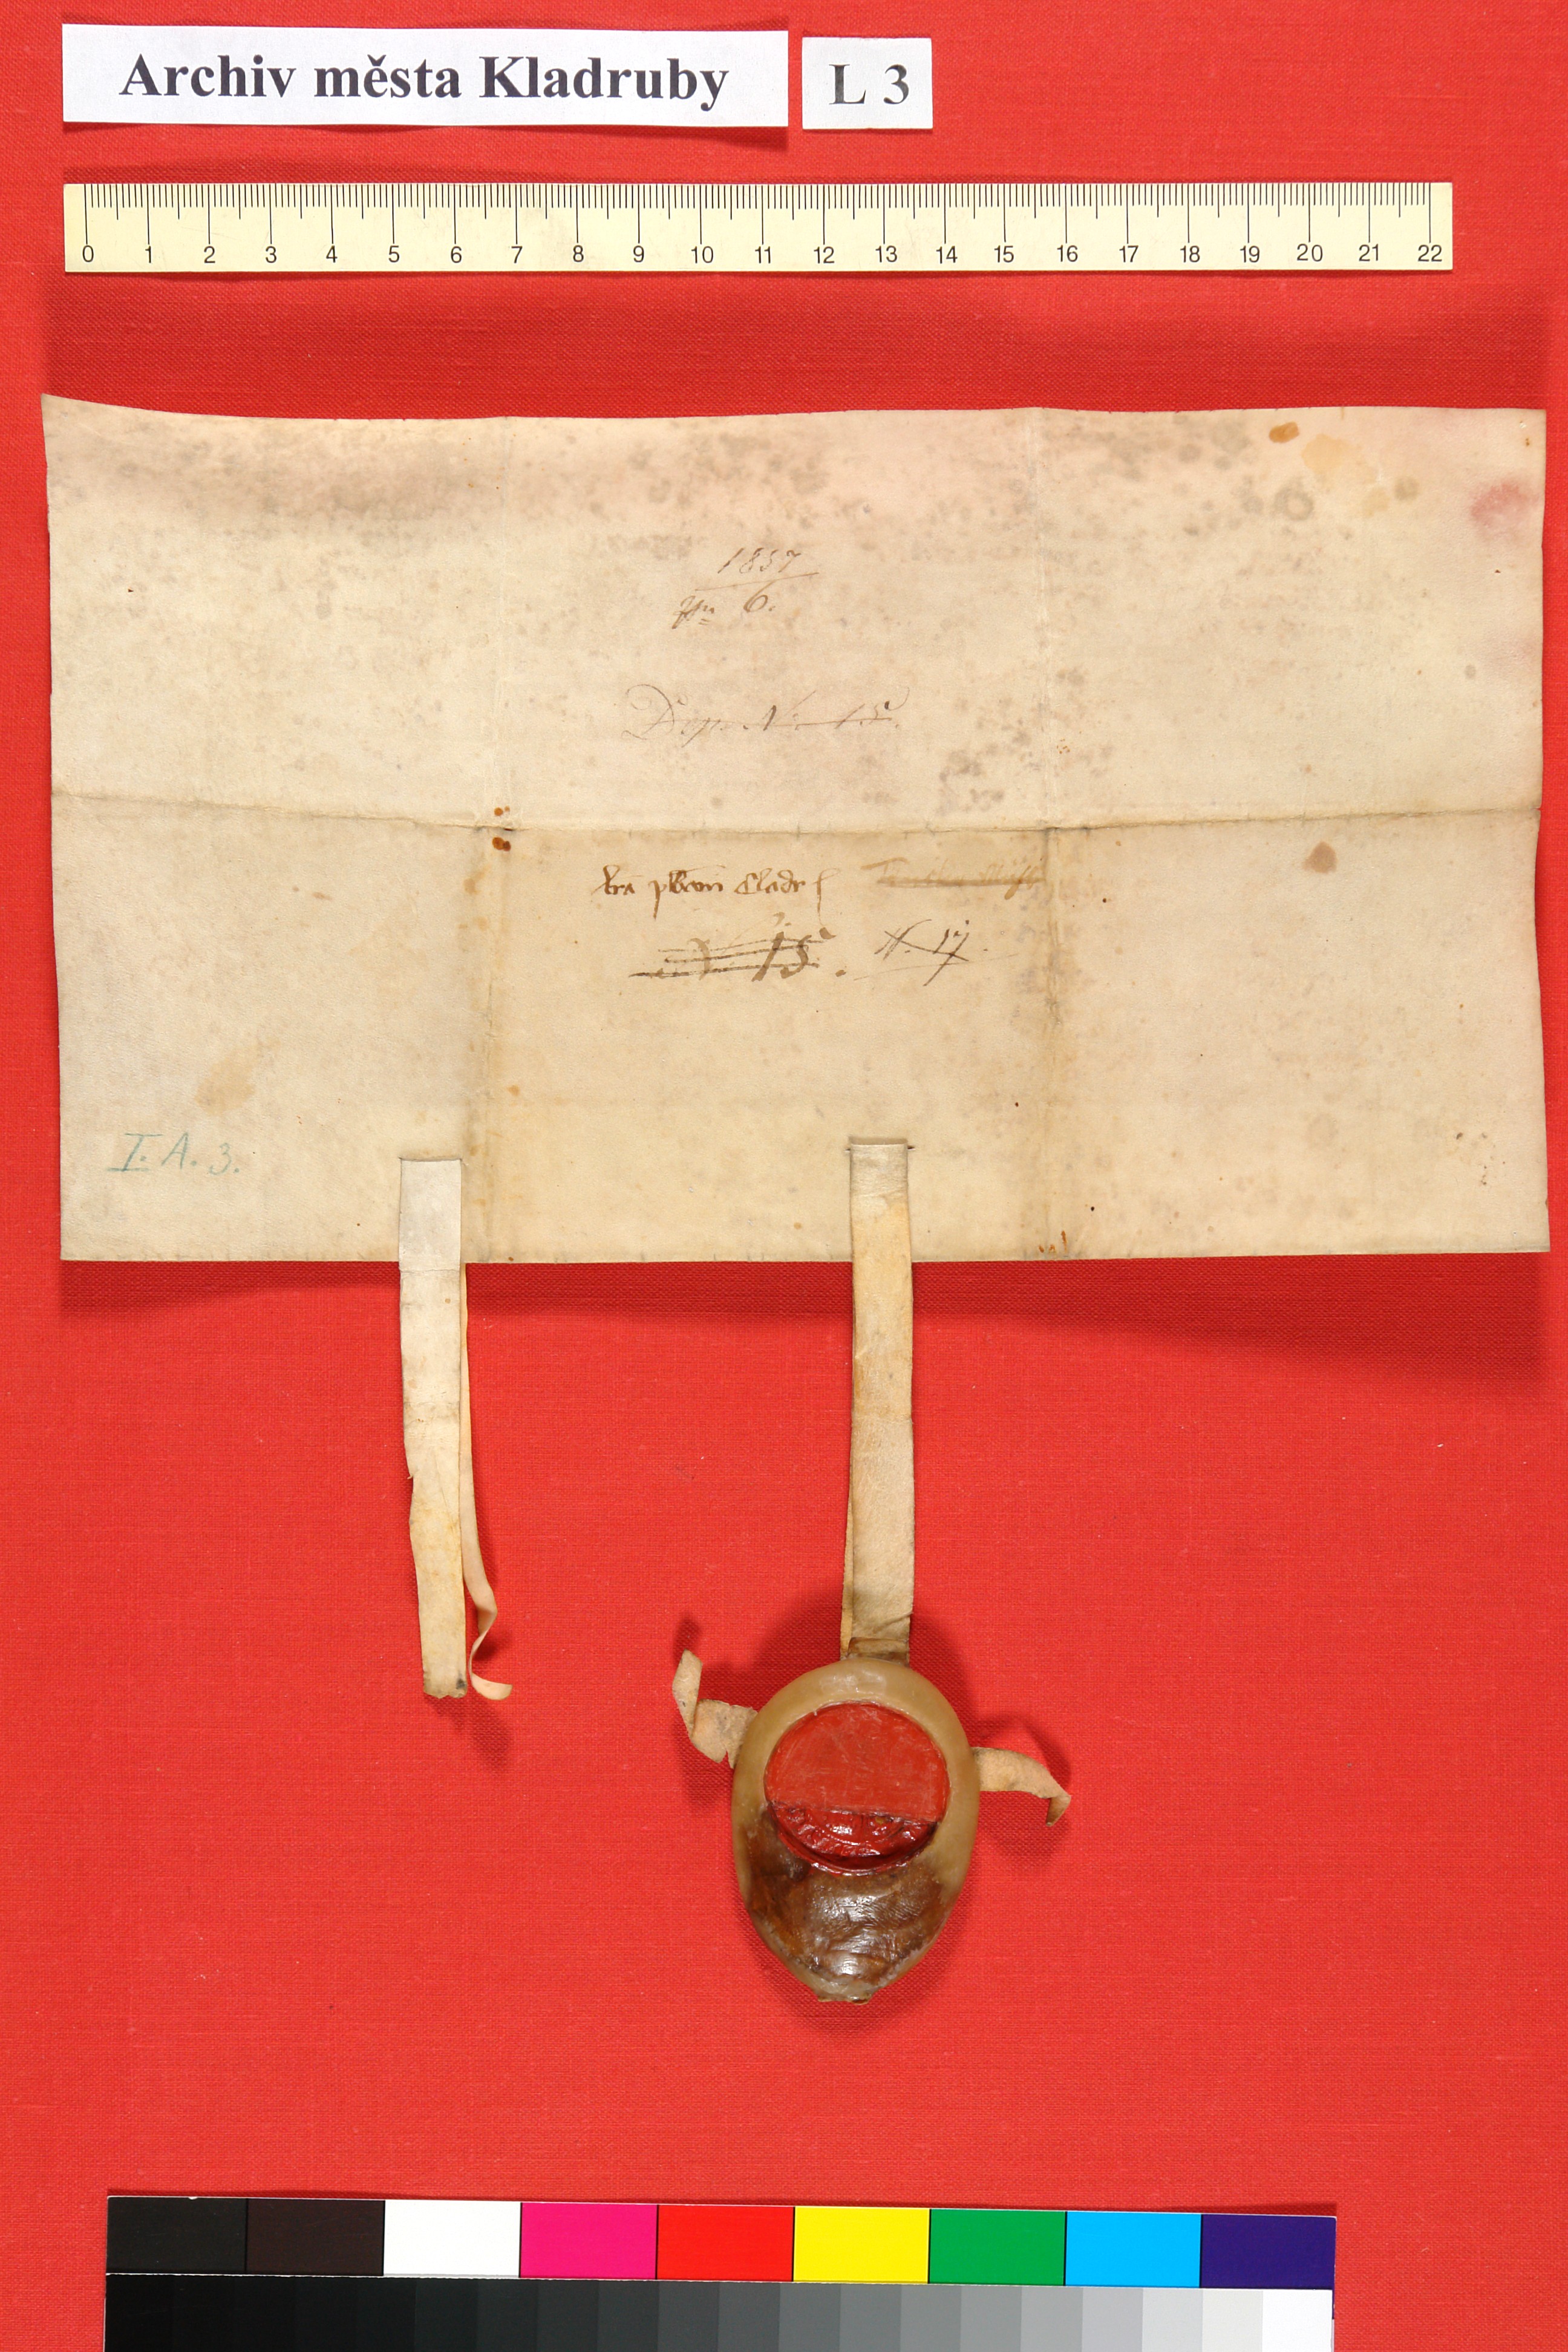 Archiv města Kladruby L 3
0 1 2 3 4 5 6 7 8 9 10 11 12 13 14 15 16 17 18 19 20 21 22
1857
6.
Dep. N. 15.
lrā plbani Cladr
15. N. 17.
I. A. 3.